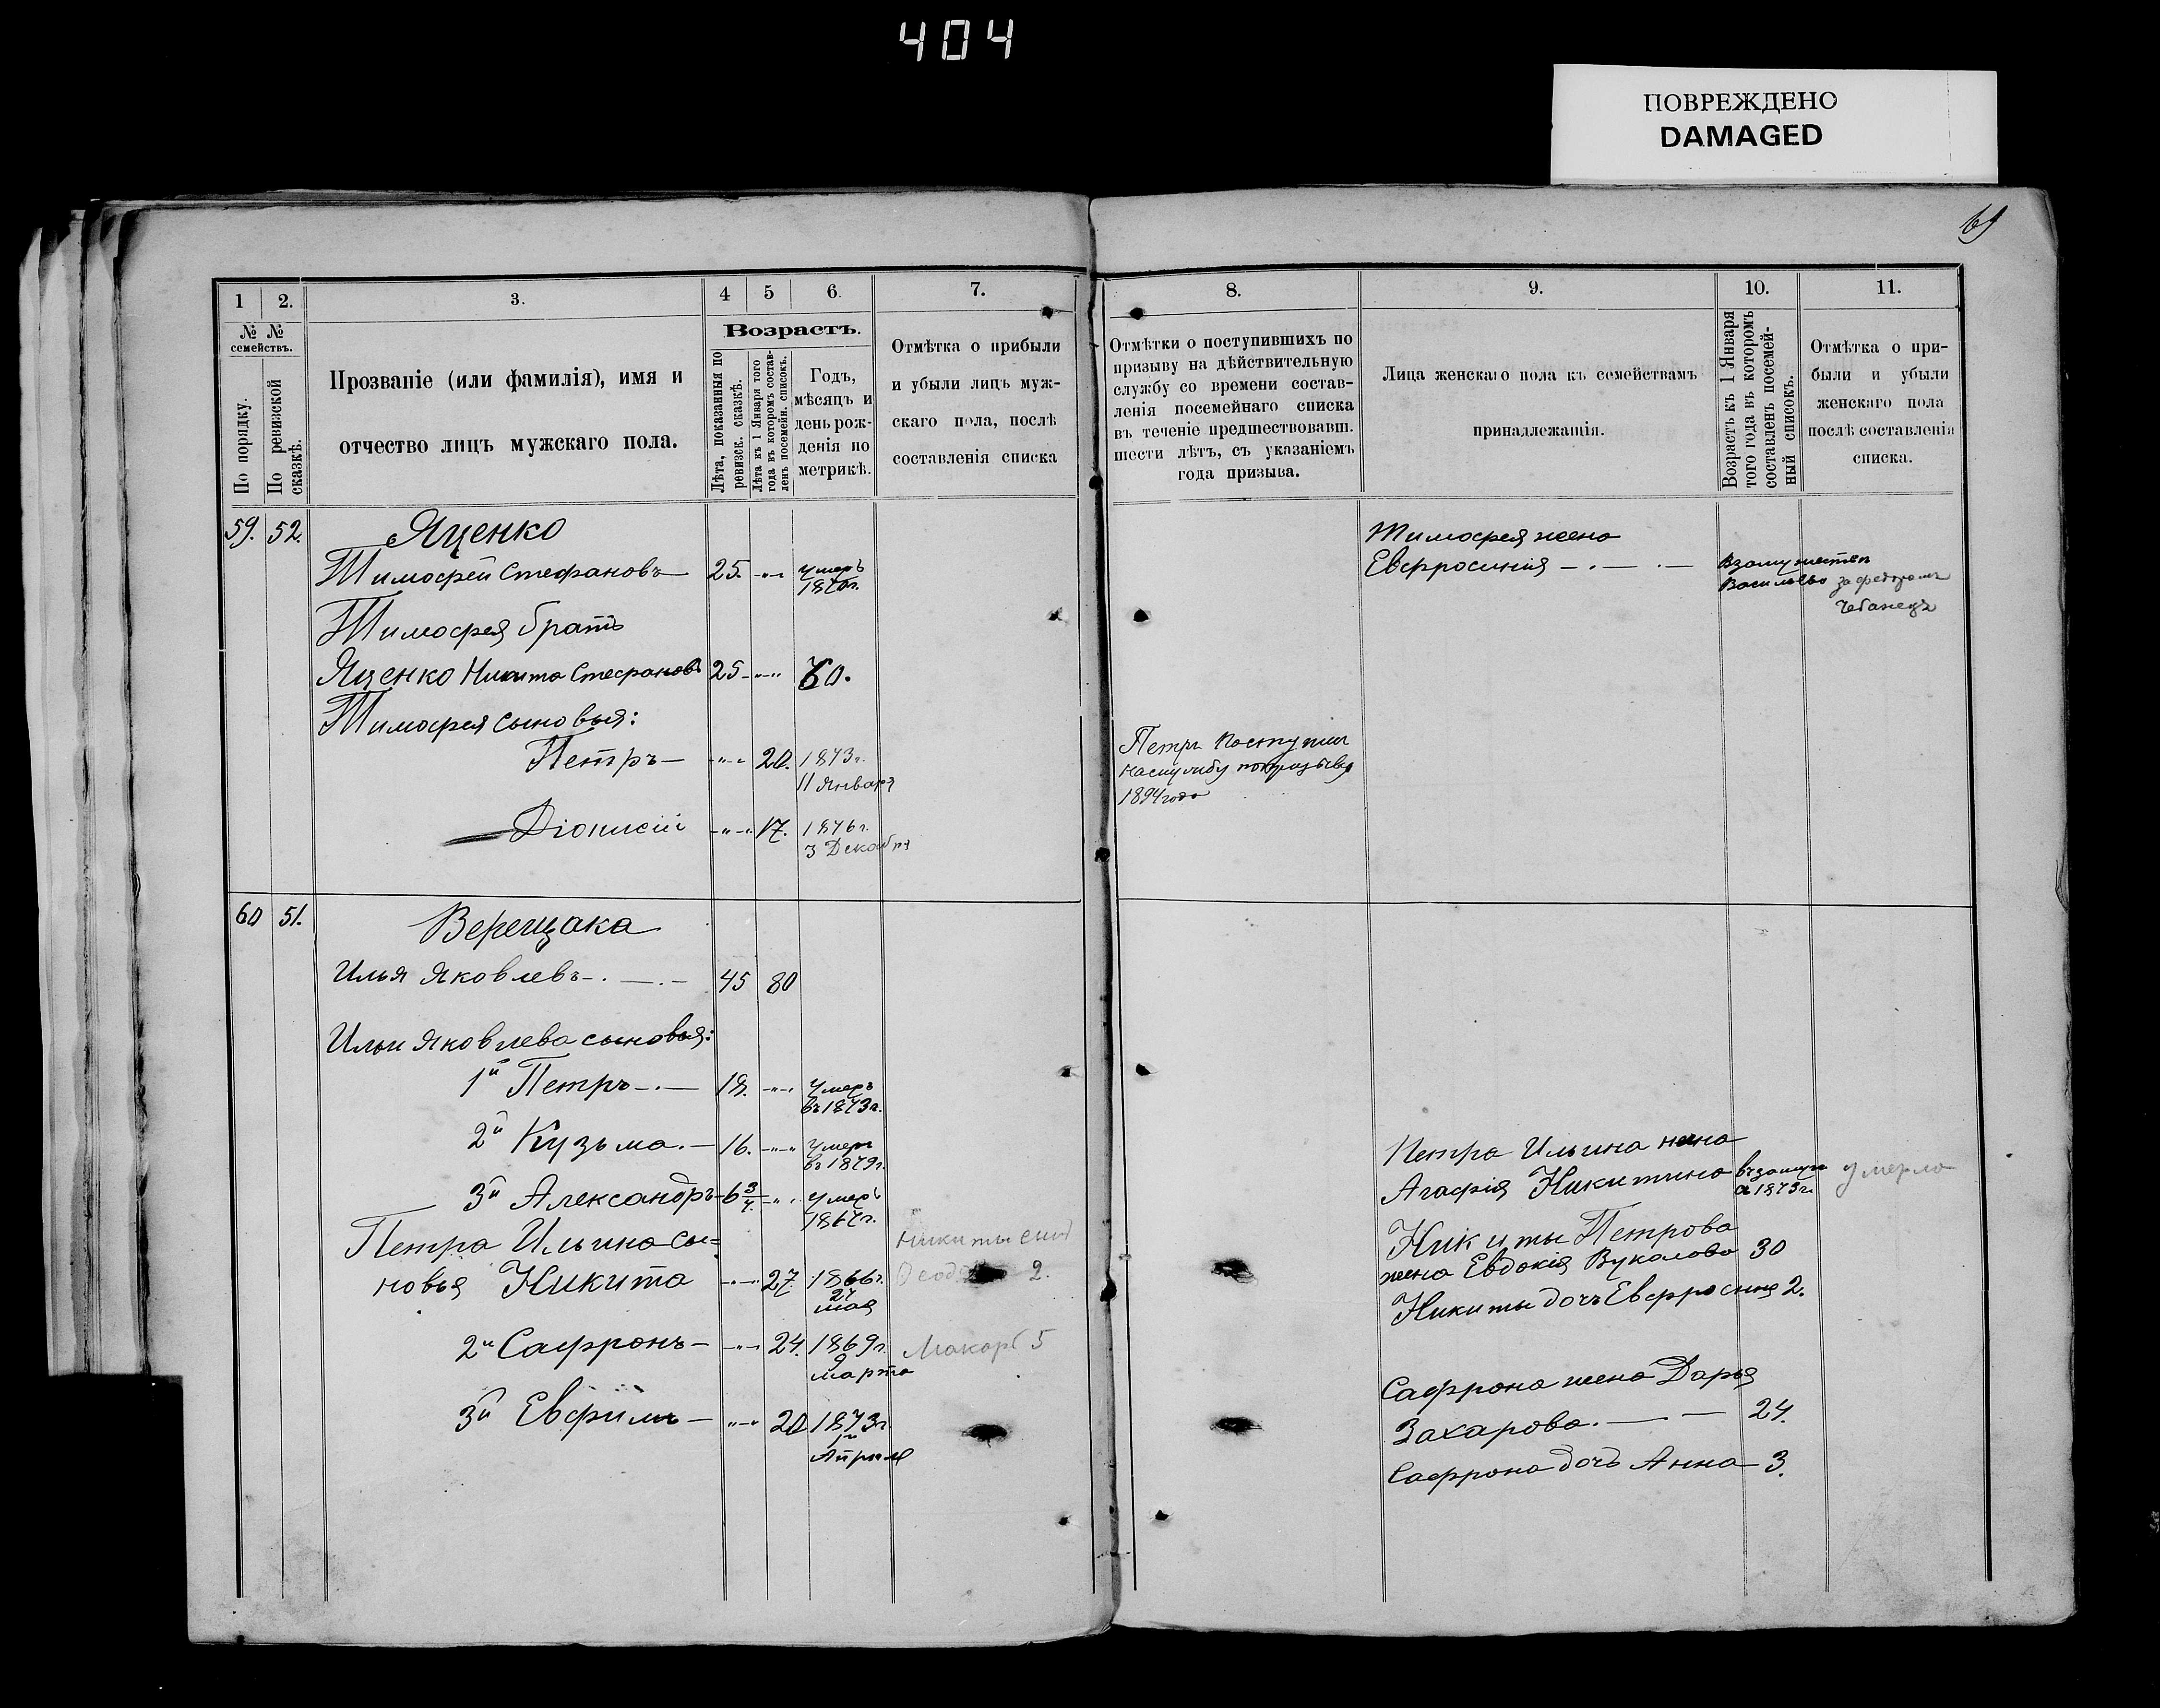 404
ПОВРЕЖДЕНО
DAMAGED
69
1 2. 3. 4 5 6. 7. 8. 9. 10. 11.
№ № семействъ.
По порядку.
По ревизской сказкѣ.
Прозваніе (или фамилія), имя и
отчество лицъ мужскаго пола.
Возрастъ.
Лѣта, показанныя по
ревизск. сказкѣ.
Лѣта къ 1 Января того
года въ которомъ состав-
ленъ посемейн. списокъ.
Годъ,
мѣсяцъ и
день рож-
денія по
метрикѣ.
Отмѣтка о прибыли
и убыли лицъ муж-
скаго пола, послѣ
составленія списка
Отмѣтки о поступившихъ по
призыву на дѣйствительную
службу со времени состав-
ленія посемейнаго списка
въ теченіе предшествовавш.
шести лѣтъ, съ указаніемъ
года призыва.
Лица женскаго пола къ семействамъ
принадлежащія.
Возрастъ къ 1 Января
того года въ которомъ
составленъ посемей-
ный списокъ.
Отмѣтка о при-
были и убыли
женскаго пола
послѣ составленія
списка.
59. 52. Яценко
Тимофей Стефановъ 25. умеръ
Тимофея жена
Евфросинія
за Федоромъ
Чебанецъ
Тимофея братъ
Яценко Никита Стефановъ 25 60.
Тимофея сыновья:
Петръ 20. 1873г.
11 Января
Петръ поступил
на службу по призыву
1894 года
Діонисій 17. 1876г.
3 Декабря
60 51. Верещака
Илья Яковлевъ 45 80
Ильи Яковлева сыновья:
1й Петръ 18. умеръ
въ 1873г.
2й Кузьма 16. умеръ
въ 1879г.
3й Александръ 6 3/4. умеръ
Петра Ильина сы=
новья Никита 27. 1866г.
24
мая
Никиты сын
2.
2й Сафронъ 24. 1869г.
9
марта
Макаръ 5
3й Евфимъ 20 1873г.
Апреля
Петра Ильина жена
Агафія Никитина
1873г.
умерла
Никиты Петрова
жена Евдокія Вуколова 30
Никиты дочь Евфросинія 2.
Сафрона жена Дарья
Захарова 24.
Сафрона дочь Анна 3.